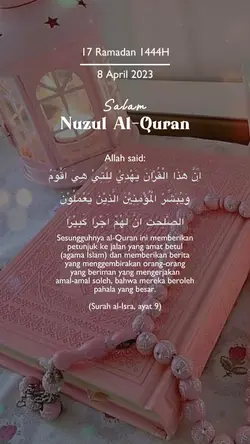 17 Ramadan 1444H
8 April 2023
Salam
Nuzul Al-Quran
Allah said:
انَّ هٰذَا الْقُرْاٰنَ يَهْدِيْ لِلَّتِيْ هِيَ اَقْوَمُ
وَيُبَشِّرُ الْمُؤْمِنِيْنَ الَّذِيْنَ يَعْمَلُوْنَ
الصّٰلِحٰتِ اَنَّ لَهُمْ اَجْرًا كَبِيْرًا
Sesungguhnya al-Quran ini memberikan
petunjuk ke jalan yang amat betul
(agama Islam) dan memberikan berita
yang menggembirakan orang-orang
yang beriman yang mengerjakan
amal-amal soleh, bahwa mereka beroleh
pahala yang besar.
(Surah al-Isra, ayat 9)